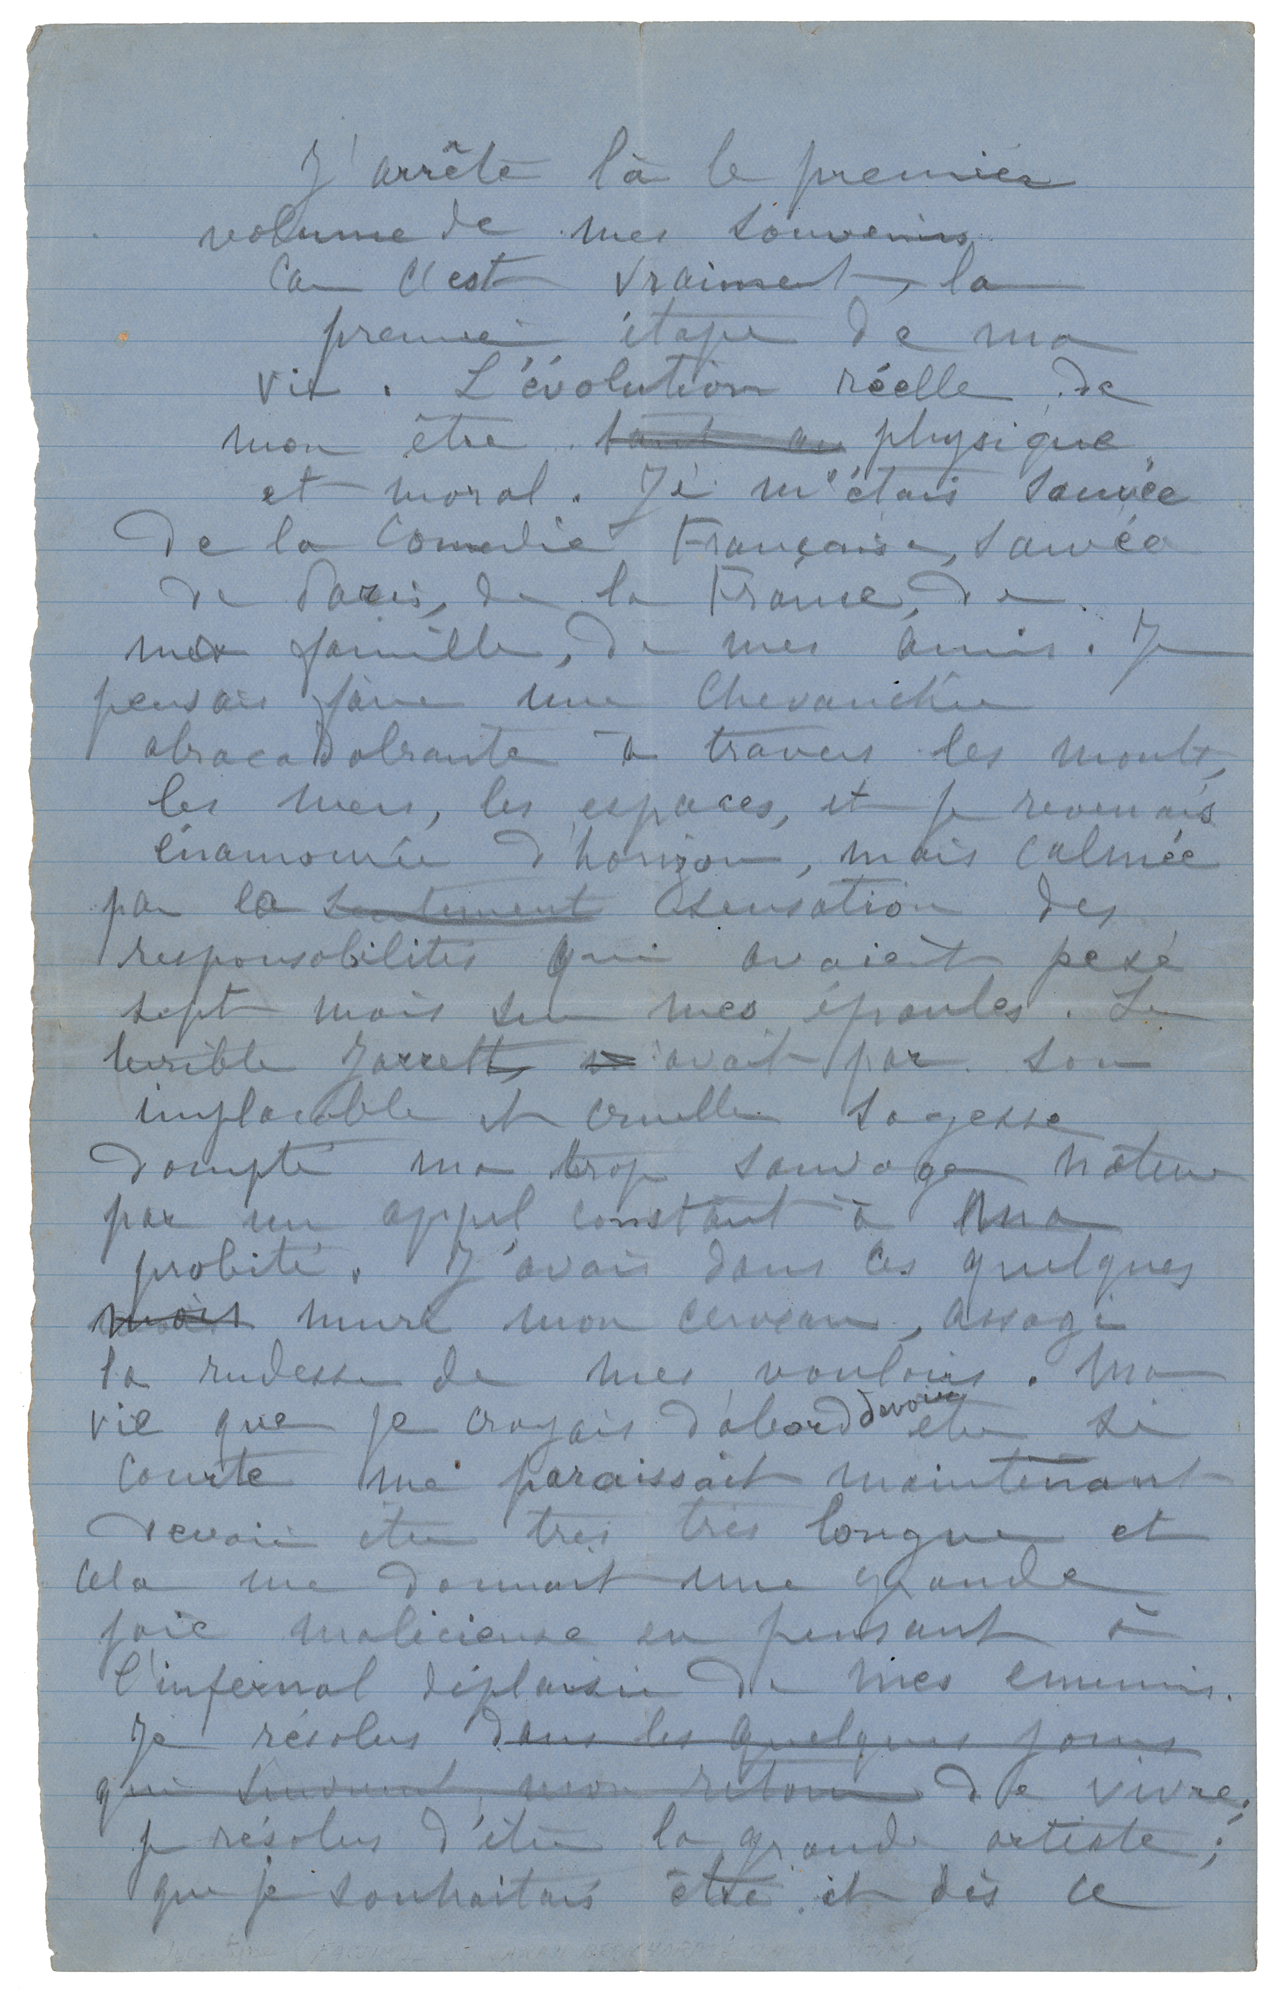 J'arrête là le premier
volume de mes souvenirs
car c'est vraiment, la
premier étape de ma
vie. L'évolution réelle de
mon être tant au physique
et moral. Je m'étais sauvée
de la Comedie Française, sauvée
de Paris, de la France, de
ma famille, de mes amis. Je
pensais faire une Chevauchée
abracadabrante à travers les monts,
les mers, les espaces, et je revenais
énamourée d'horizon, mais calmée
par la sentiment sensation des
responsabilités qui avaient pesé
sept mois sur mes épaules. Le
terrible Jarrett, avait par son
implacable et cruelle sagesse
dompté ma trop sauvage nature
par un appel constant à ma
probité. J'avais dans ces quelques
mois muri mon cerveau, assagi
la rudesse de mes vouloirs. Ma
vie que je croyais d'abord devoir être si
courte me paraissait maintenant
devoir être très très longue et
cela me donnait une grande
joie malicieuse en pensant à
l'infernal déplaisir de mes ennemis.
Je résolus dans les quelques jours
qui suivirent mon retour de vivre;
je résolus d'être la grande artiste;
que je souhaitais être et dès ce